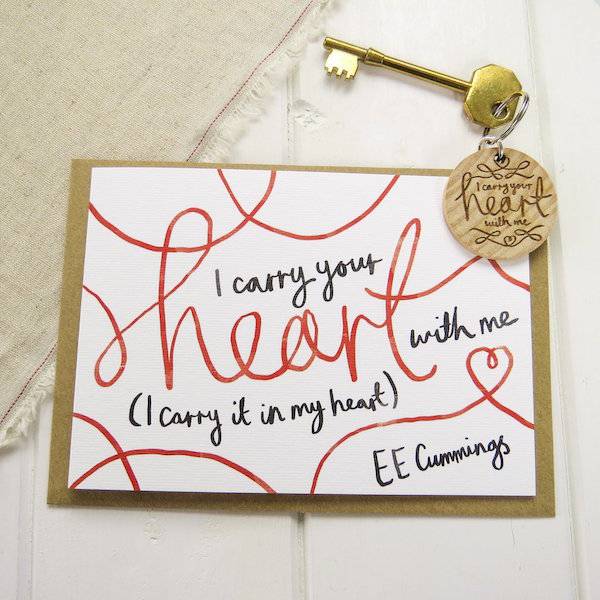 I carry your
heart
with me
(I carry it in my heart)
EE Cummings
I carry your
heart
with me